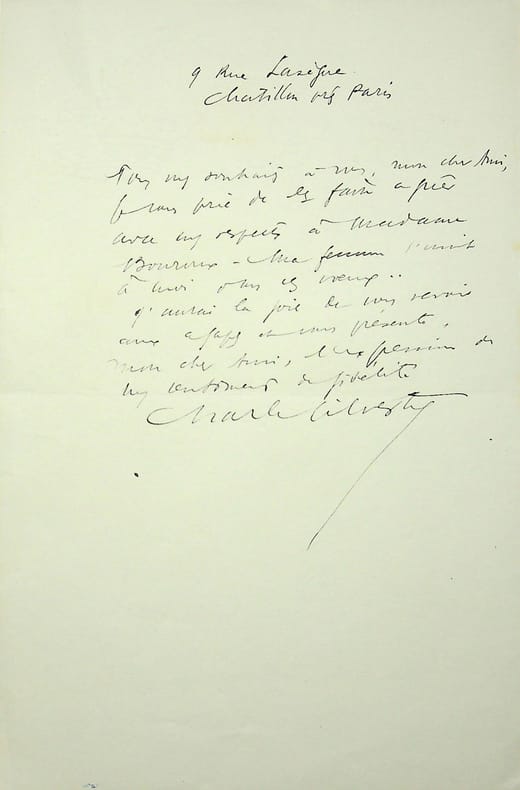 9 Rue Lasègue
Chatillon près Paris
Tous mes souhaits à vous, mon cher Ami,
Je vous prie de les faire agréer
avec mes respects à Madame
Bouroux - Ma femme s'unit
à moi dans ces voeux ..
J'aurai la joie de vous revoir
aux et vous présente,
mon cher Ami, l'expression de
mes sentiments de fidélité
Charles Silvestre